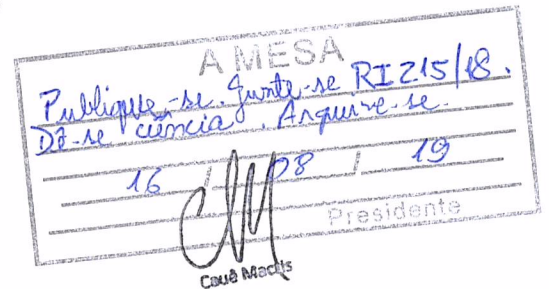 A MESA
Publique-se. Junte-se RI 215/18.
Dê-se ciência. Arquive-se.
16 / 08 / 19
Presidente
Cauê Macris